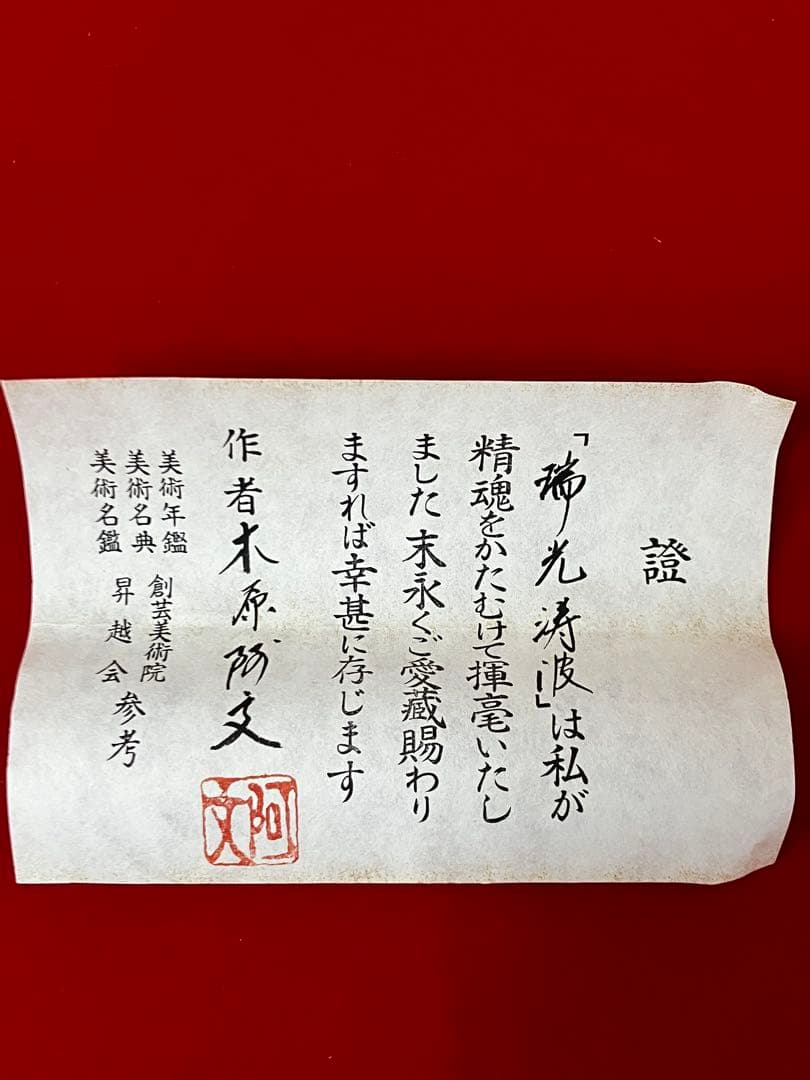 證
「瑞光涛波」は私が
精魂をかたむけて揮毫いたし
ました 末永くご愛蔵賜わり
ますれば幸甚に存じます
作者 木原阿文
阿文
美術年鑑
美術名典
美術名鑑
創芸美術院
昇越会
参考